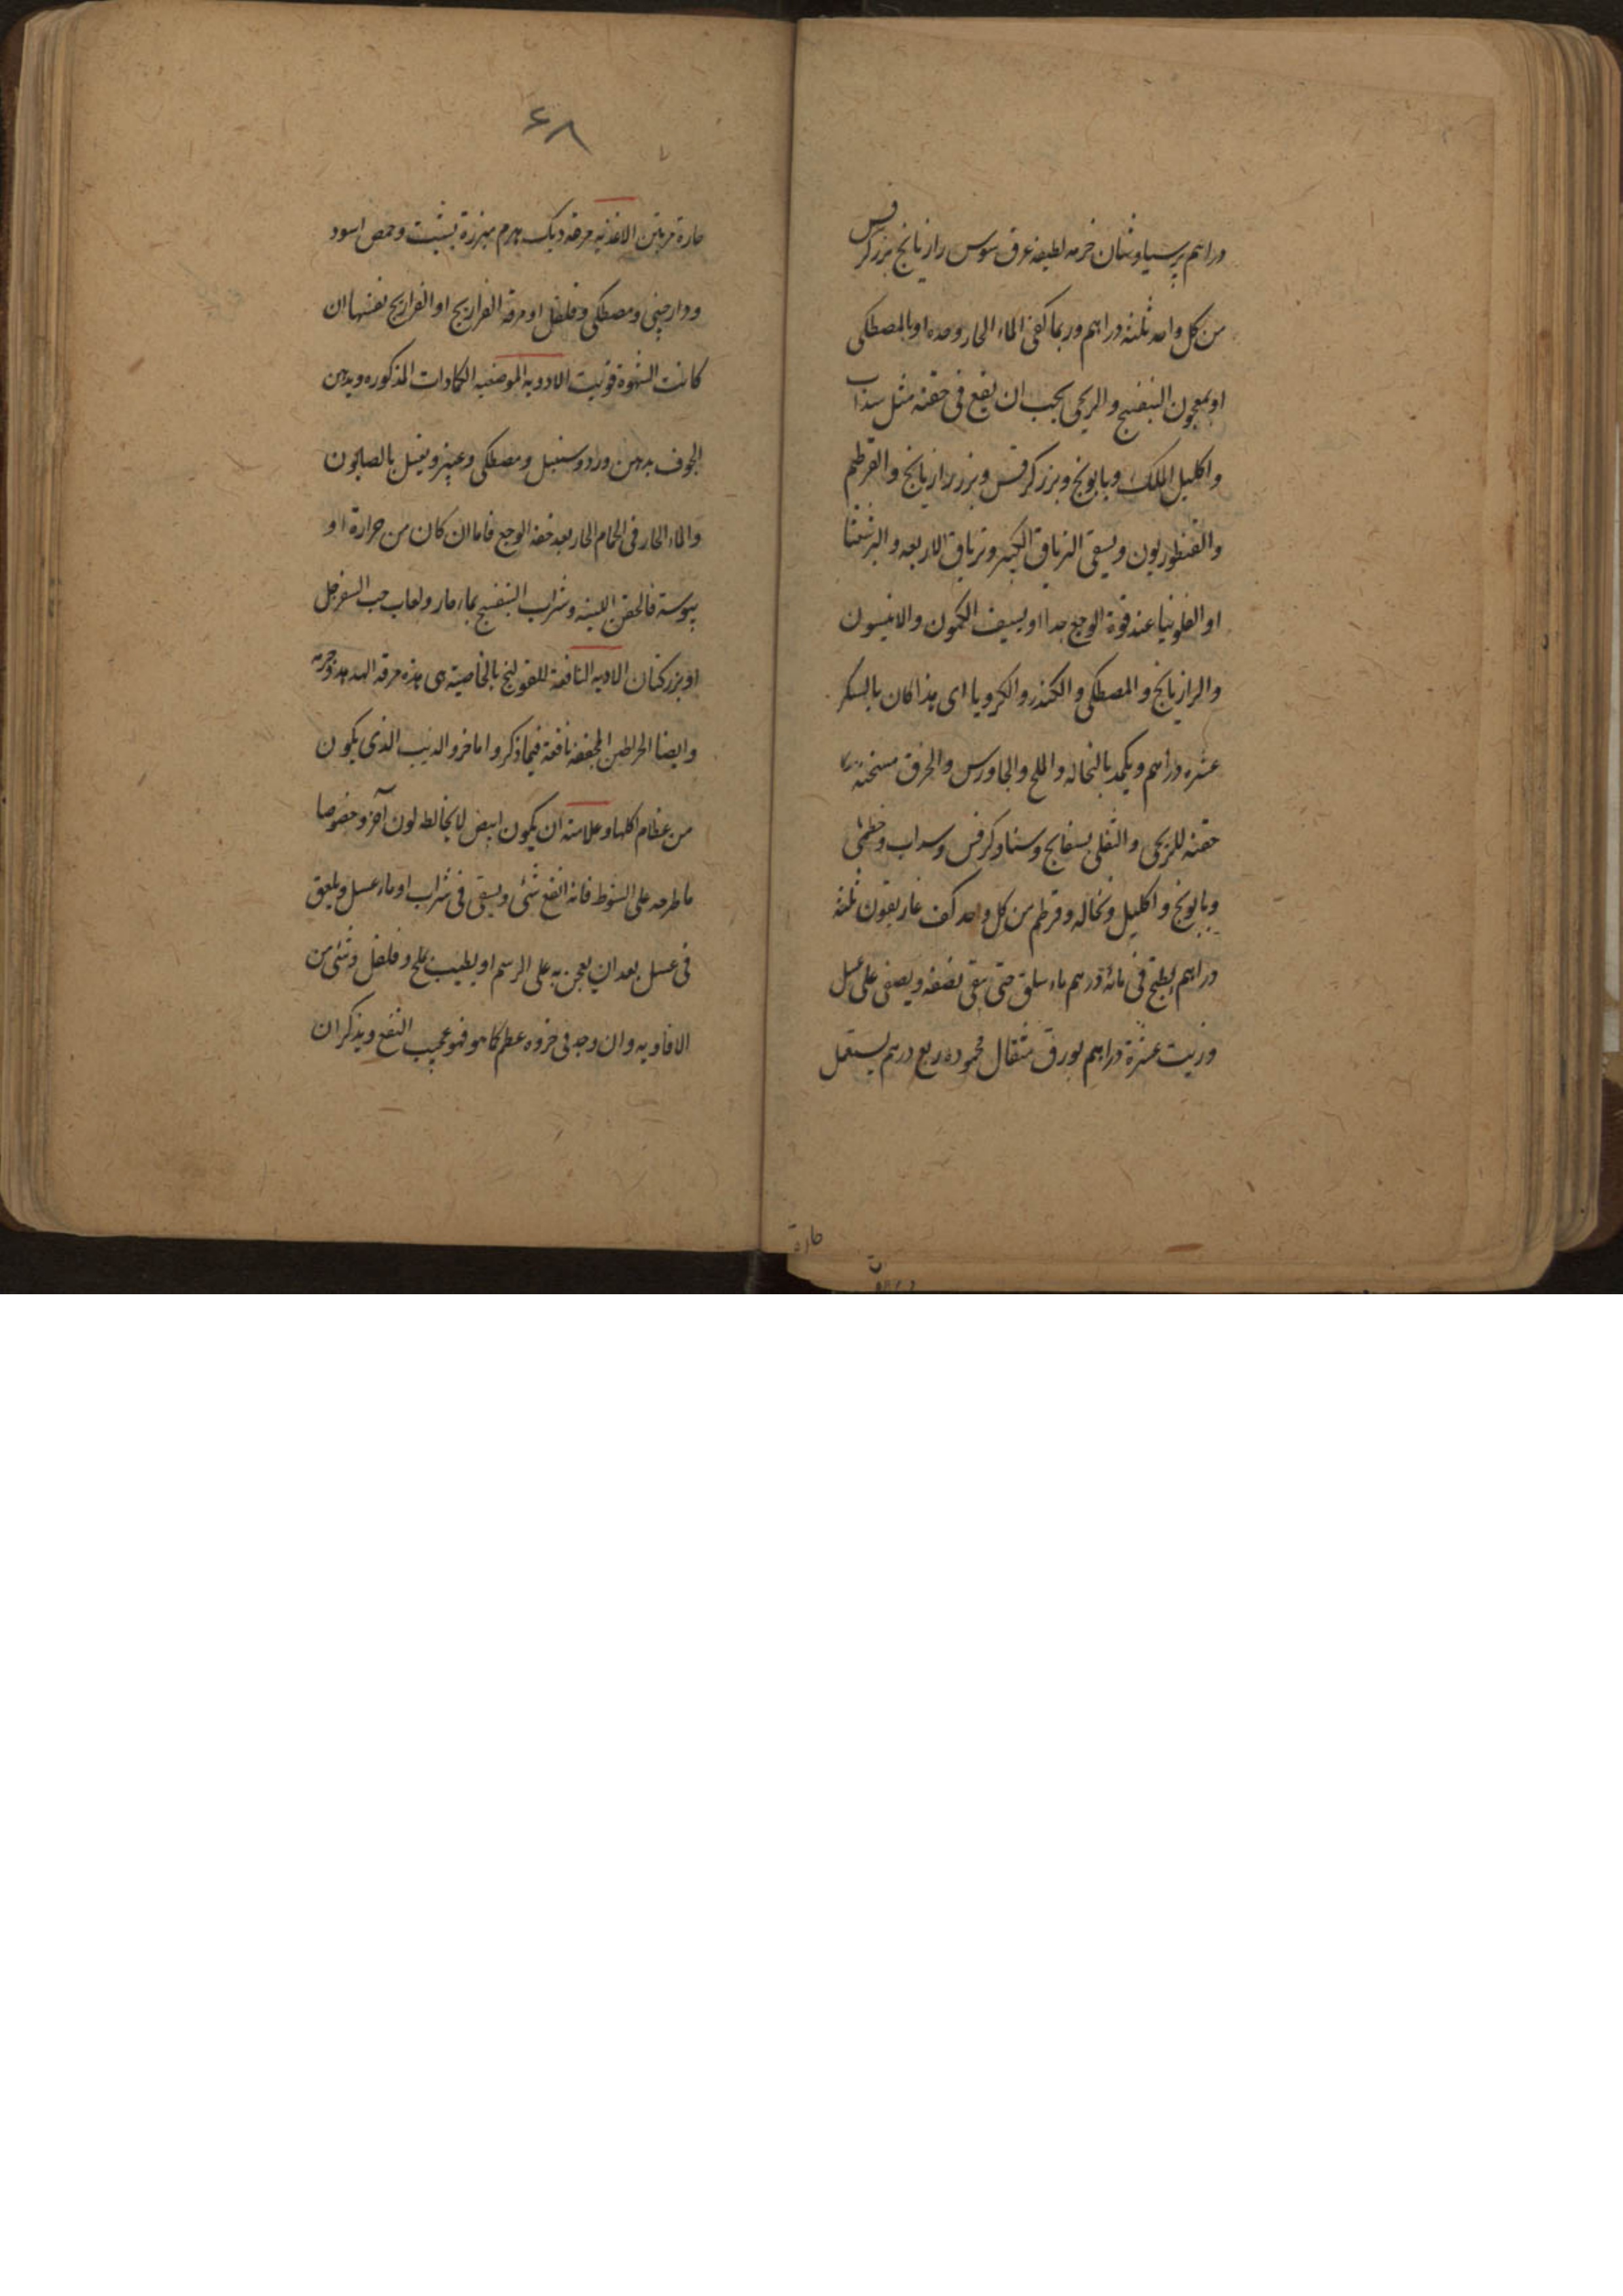 دراهم پرسیاوشان خرمه لطیفه عرق سوس رازیانج بزر کرفس
من کل واحد ثلثه دراهم وربما کفی الماء الحار وحده او بالمصطکی
او بمعجون البنفسج والریحی یجب ان یقع فی حقنه مثل سذاب
واکلیل الملک وبابونج وبزر کرفس وبزر رازیانج والقرطم
والقنطوریون ویسقی التریاق الکبیر وتریاق الاربعه والبرشعثا
او الفلونیا عند قوة الوجع جدا او یسیف الکمون والانیسون
والرازیانج والمصطکی والکندر والکرویا ای هذا کان بالسکر
عشره دراهم ویکمد بالنخاله والملح والجاورس والخرق مسخنه
حقنه للریحی والثفلی بسفایج وسنا وکرفس وسداب وخطمی
وبابونج واکلیل ونخاله وقرطم من کل واحد کف غاریقون ثلثه
دراهم یطبخ فی مائة درهم ماء سلق حتی یبقی نصفه ویصفی علی عسل
وزیت عشرة دراهم بورق مثقال محموده ربع درهم یستعمل
حارة
۶۸
حارة مرتین الاغذیه مرقه دیک هرم مبزرة بشبت وحمص اسود
ودارچینی ومصطکی وفلفل او مرقه الفراریج او الفراریج نفسها ان
کانت الشهوة قویت الادویه الموضعیه الکمادات المذکوره ویدهن
الجوف بدهن ورد وسنبل ومصطکی وعنبر ویغسل بالصابون
والماء الحار فی الحمام الحار بعد خفة الوجع فاما ان کان من حرارة او
یبوسة فالحقن اللینه وشراب البنفسج بماء حار ولعاب حب السفرجل
او بزر کتان الادیه النافعة للقولنج بالخاصیته هی هذه مرقه الهدهد وجرمه
وایضا الخراطین المجففه نافعة فیما ذکر واما خرو الذیب الذی یکون
من عظام اکلها وعلامته ان یکون ابیض لا یخالطه لون آخر وخصوصا
ما طرحه علی الشوط فانه انفع شئی ویسقی فی شراب او ماء عسل ویلعق
فی عسل بعد ان یعجن به علی الرسم او یطیب بملح وفلفل وشئی من
الافاویه وان وجد فی خروه عظم کما هو فهو عجیب النفع ویذکر ان